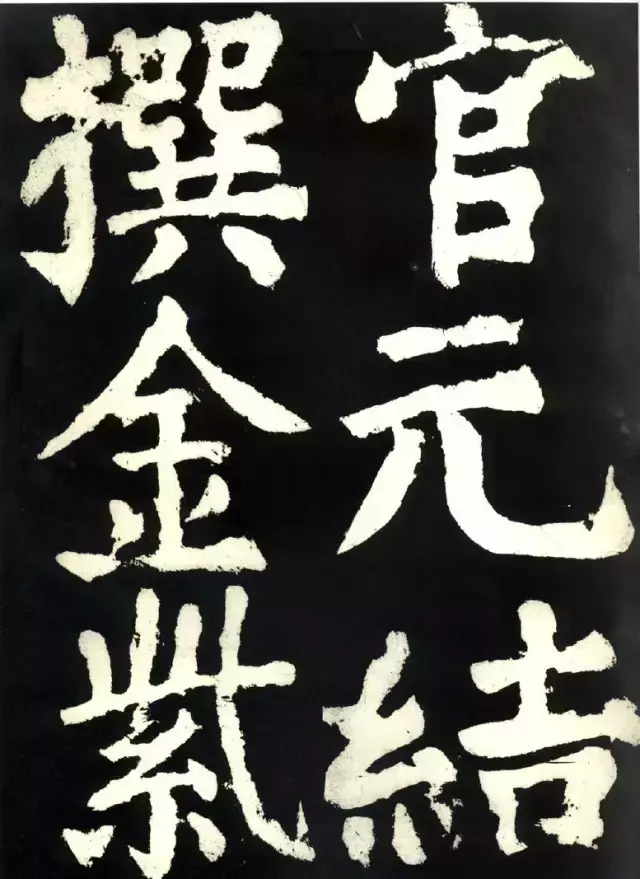 官元結
撰金紫